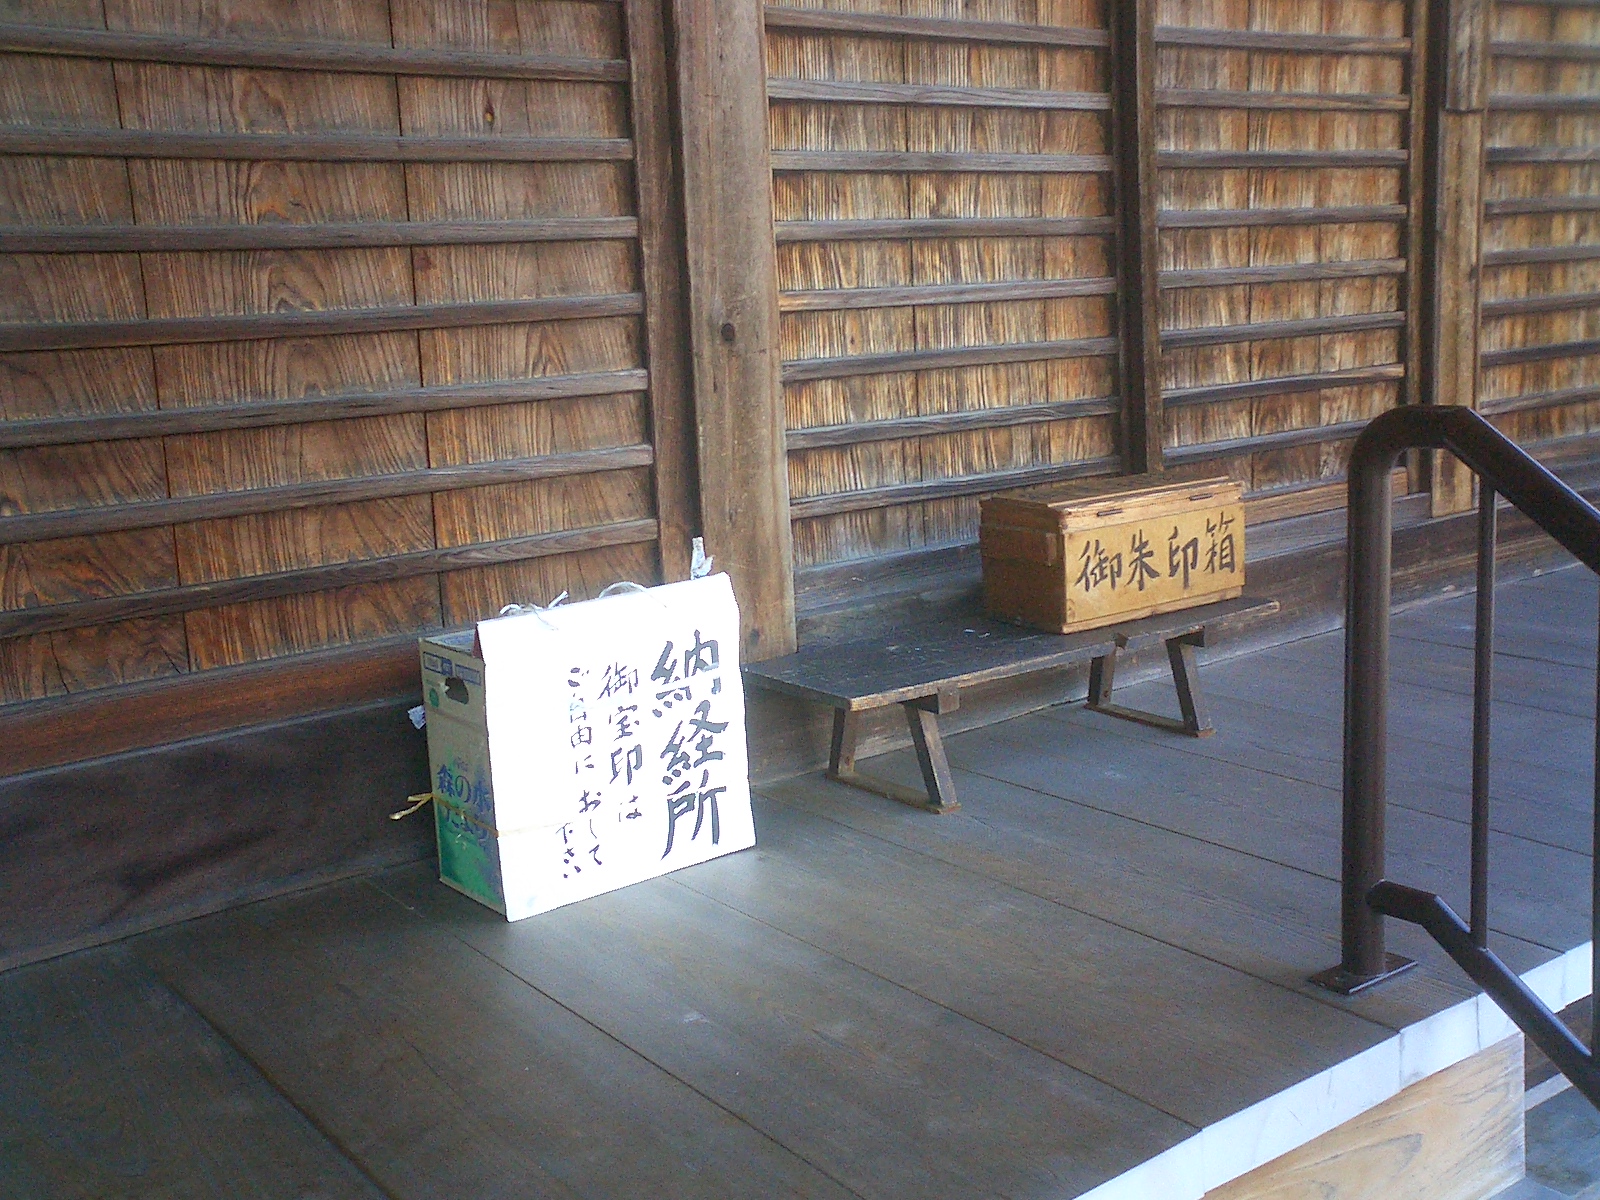 納経所
御宝印は
ご自由におして
下さい
御朱印箱
森の水
だより